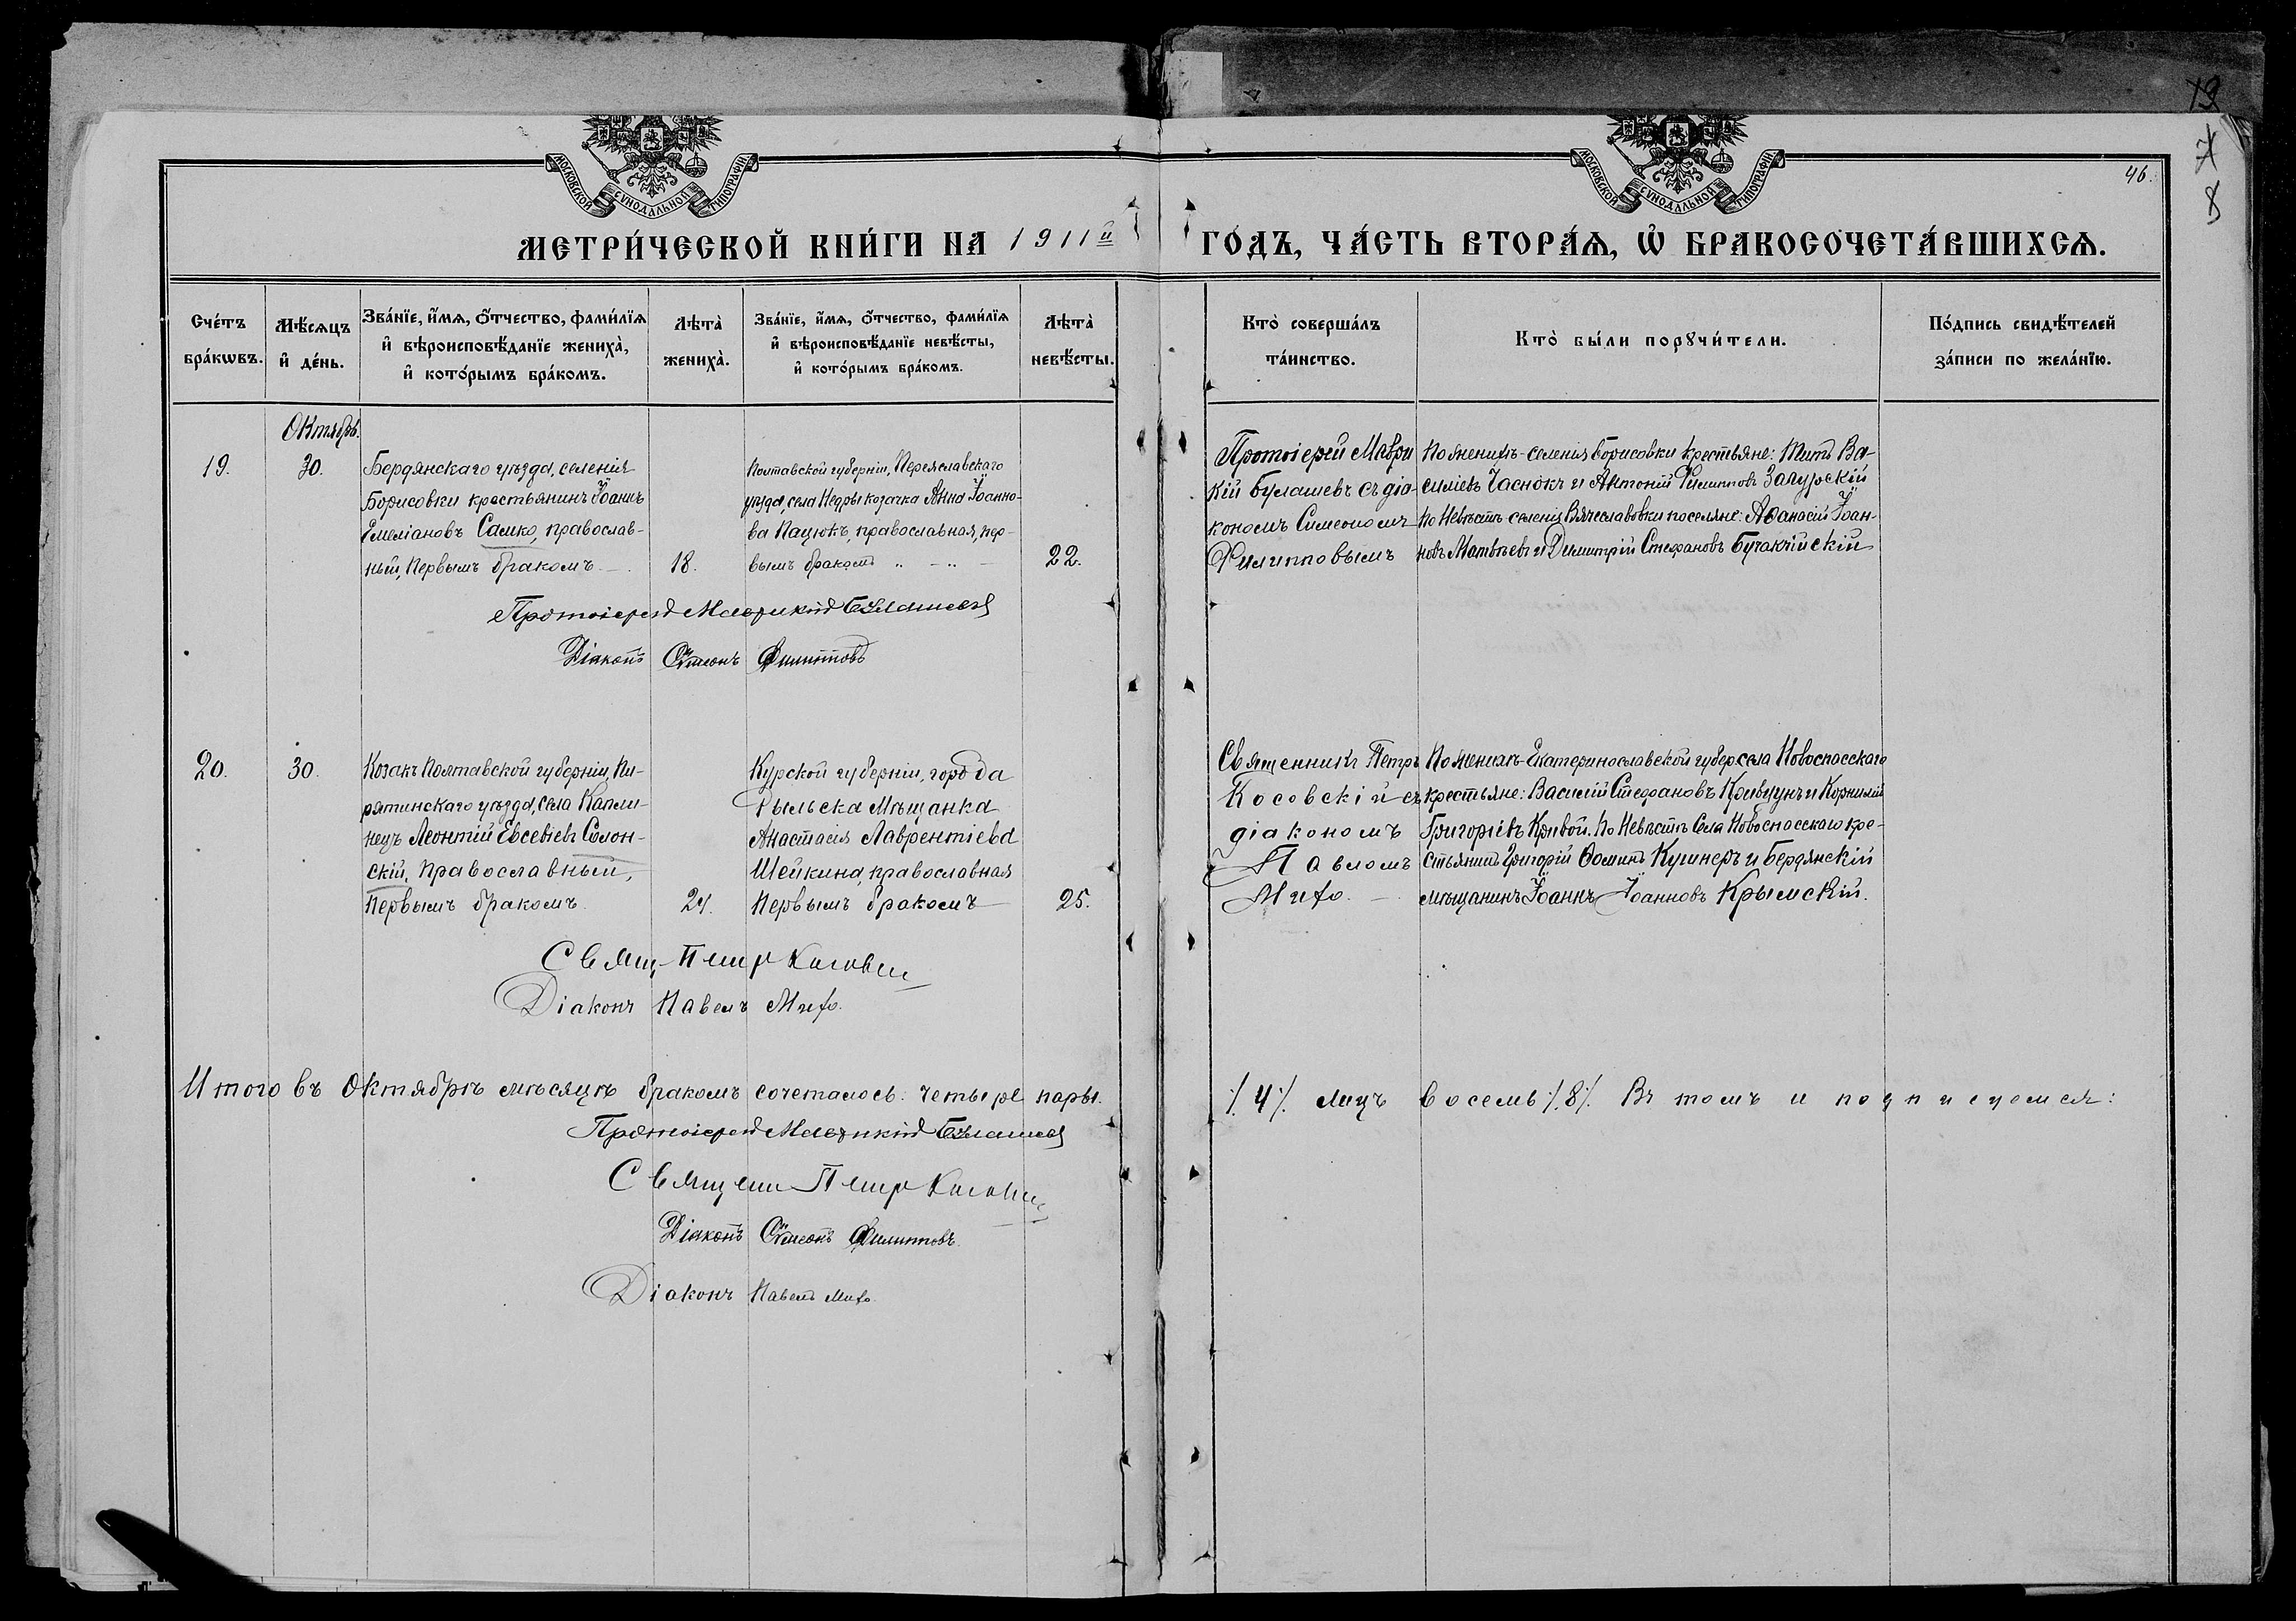 19
7
8
46.
МОСКОВСКОЙ СУНОДАЛЬНОЙ ТИПОГРАФІИ
МОСКОВСКОЙ СУНОДАЛЬНОЙ ТИПОГРАФІИ
МЕТРИ́ЧЕСКОЙ КНИ́ГИ НА 1911й
ГО́ДЪ, ЧА́СТЬ ВТОРА́Я, Ѡ БРАКОСОЧЕТА́ВШИХСЯ.
Сче́тъ
бра́кѡвъ.
Мѣ́сяцъ
и де́нь.
Зва́нїе, и́мя, о́тчество, фами́лїя
и вѣроисповѣ́данїе жениха̀,
и кото́рымъ бра́комъ.
Лѣта̀
жениха̀.
Зва́нїе, и́мя, о́тчество, фами́лїя
и вѣроисповѣ́данїе невѣ́сты,
и кото́рымъ бра́комъ.
Лѣта̀
невѣ́сты.
Кто̀ соверша́лъ
та́инство.
Кто̀ бы́ли порꙋчи́тели.
По́дпись свидѣ́телей
за́писи по жела́нїю.
Октябрь.
19.
30.
Бердянскаго уѣзда, селенія
Борисовки крестьянинъ Іоаннъ
Емеліановъ Самко, православ-
ный, первымъ бракомъ
18.
Полтавской губерніи, Переяславскаго
уѣзда, села Недры козачка Анна Іоанно-
ва Пацюкъ, православная, пер-
вымъ бракомъ
22.
Протоіерей Маври
кій Булашевъ съ діа-
кономъ Симеономъ
Филипповымъ
По женихѣ - селенія Борисовки крестьяне: Титъ Ва-
силіевъ Часнокъ и Антоній Филипповъ Запурскій
По невѣстѣ селенія Вячеславовки поселяне: Аѳанасій Іоан-
новъ Матвѣевъ и Димитрій Стефановъ Бучакчійскій
Протоіерей Маврикій Булашевъ
Діаконъ Симеонъ Филипповъ
20.
30.
Козакъ Полтавской губерніи, Пи-
рятинскаго уѣзда, села Капли-
нецъ Леонтій Евсевіевъ Солон-
скій, православный,
первымъ бракомъ
24.
Курской губерніи, города
Рыльска мѣщанка
Анастасія Лаврентіева
Шейкина, православная
первымъ бракомъ
25.
Священникъ Петръ
Косовскій съ
діакономъ
Павломъ
Мифо.
По женихѣ - Екатеринославской губер. села Новоспасскаго
крестьяне: Василій Стефановъ Кривцунъ и Корнилій
Григоріевъ Кривой. По невѣстѣ села Новоспасскаго кре-
стьянинъ Григорій Ѳоминъ Кушнеръ и Бердянскій
мѣщанинъ Іоаннъ Іоанновъ Крымскій.
Свящ. Петръ Косовскій
Діаконъ Павелъ Мифо.
Итого въ Октябрѣ мѣсяцѣ бракомъ сочеталось: четыре пары.
/.4/. лицъ восемь /.8/. Въ томъ и подписуемся:
Протоіерей Маврикій Булашевъ
Священ Петръ Косовскій
Діаконъ Симеонъ Филипповъ.
Діаконъ Павелъ Мифо.